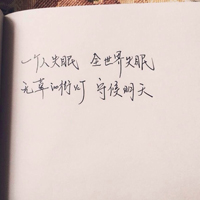 一个人失眠 全世界失眠
无辜的街灯 守候明天